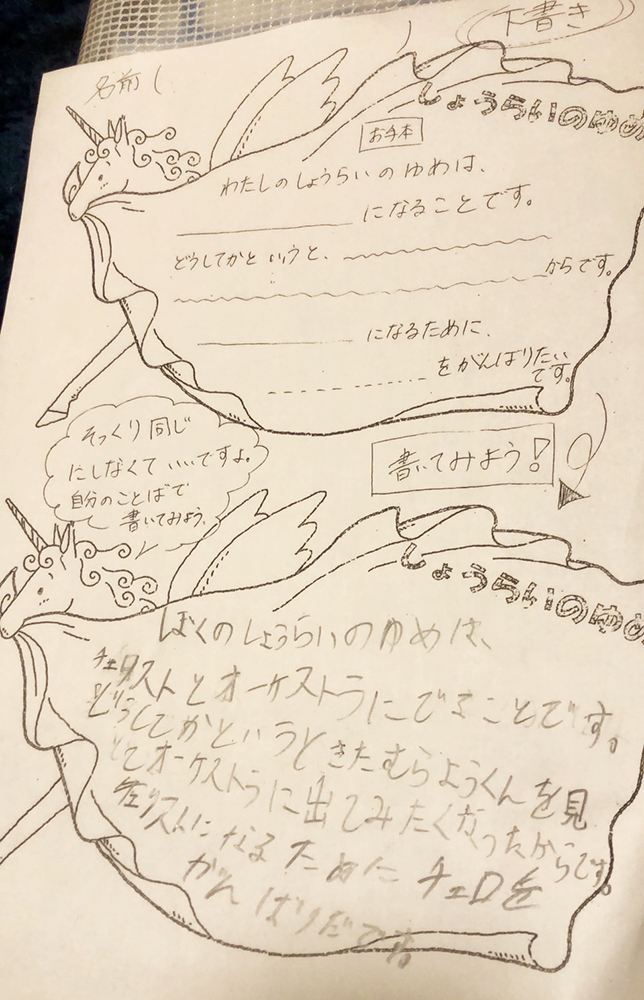 下書き
名前(
しょうらいのゆめ
お手本
わたしのしょうらいのゆめは、
になることです。
どうしてかというと、
からです。
になるために、
をがんばりたい
です。
そっくり同じ
にしなくていいですよ。
自分のことばで
書いてみよう。
書いてみよう!
しょうらいのゆめ
ぼくのしょうらいのゆめは、
チェリストとオーケストラにでることです。
どうしてかというときたむらようくんを見
てオーケストラに出てみたくなったからです。
チェリストになるためにチェロを
がんばりたいです。